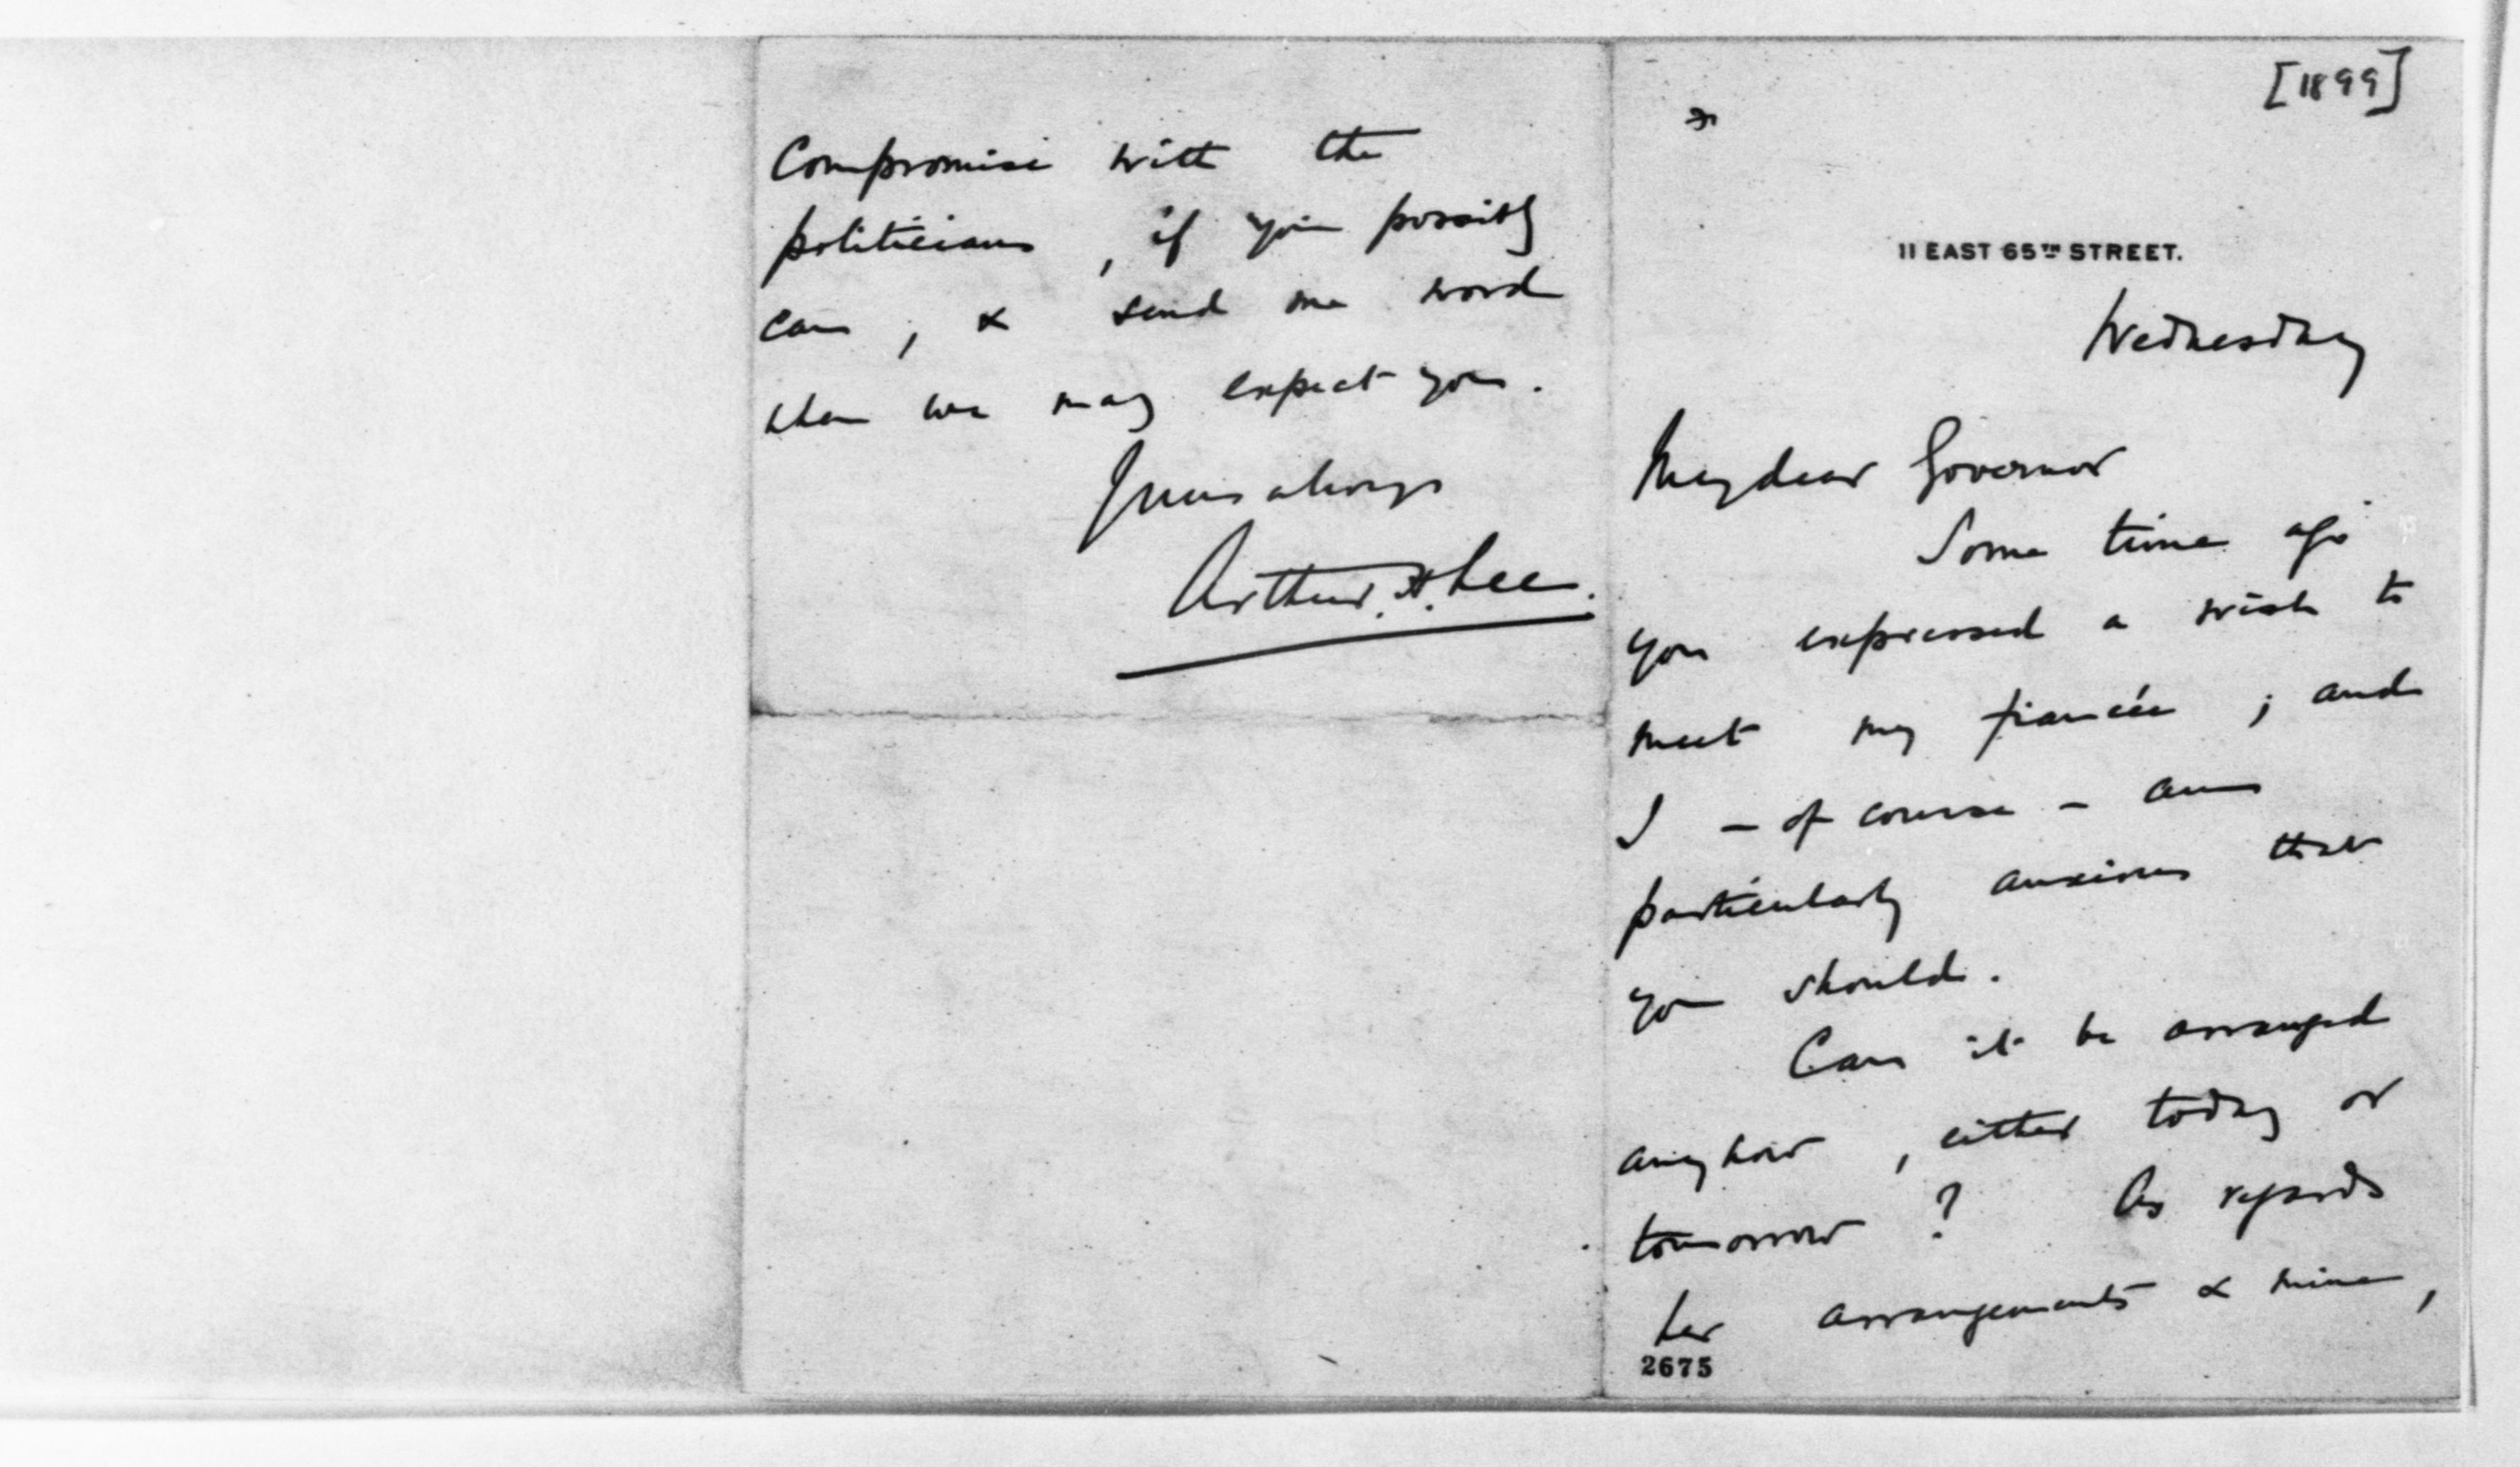 [1899]
11 EAST 65TH STREET.
Wednesday
My dear Governor
Some time ago
you expressed a wish to
meet my fiancée ; and
I – of course – am
particularly anxious that
you should.
Can it be arranged
anyhow , either today or
tomorrow ? As regards
her arrangements & mine ,
2675
Compromise with the
politicians , if you possibly
can , & send me word
when we may expect you .
Yours always
Arthur. H. Lee.